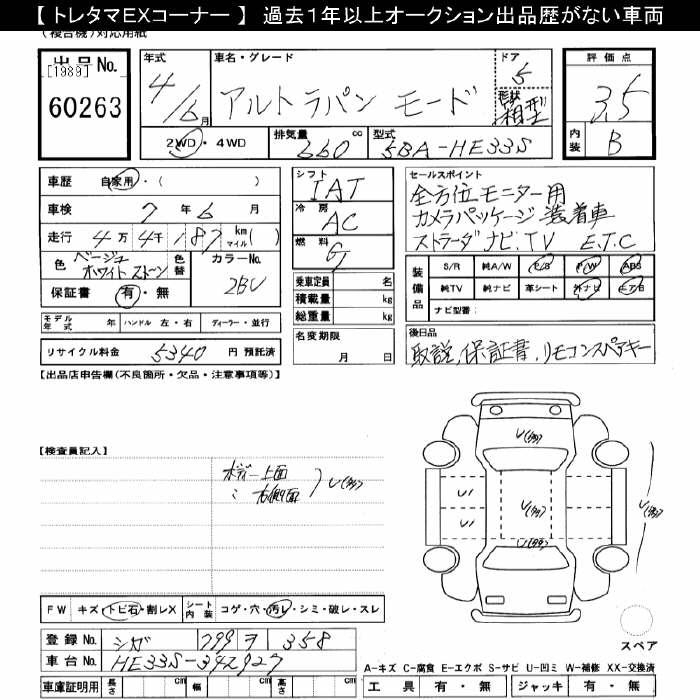 【 トレタマＥＸコーナー 】 過去１年以上オークション出品歴がない車両
(複合機)対応用紙
出品No.
[1989]
60263
年式
4/6月
車名・グレード
アルト ラパン モード
ドア
5
形状
箱型
評価点
3.5
内装
B
2WD・4WD
排気量
660
cc
型式
5BA-HE33S
車歴 自家用・( )
車検 7年 6月
走行 4万 4千 187 km マイル( )
色 ベージュ ホワイト ストーン
色替
カラーNo.
2BU
保証書 有・無
モデル年式 年 ハンドル 左・右 ディーラー・並行
リサイクル料金 5340 円 預託済
シフト
IAT
冷房
AC
燃料
G
乗車定員 名
積載量 kg
総重量 kg
名変期限
月 日
セールスポイント
全方位モニター用
カメラパッケージ装着車
ストラーダナビ.TV E.T.C
装備品
S/R 純A/W P/S P/W ABS
純TV 純ナビ 革シート 外ナビ ETC
ナビ型番:
後日品
取説, 保証書, リモコンスペアキー
【出品店申告欄(不良個所・欠品・注意事項等)】
【検査員記入】
ボディー上面
〃 右側面
U(多)
U(多)
U'
U'
U(多)
U(多)
U(多)
FW キズ・トビ石・割レX シート内装 コゲ・穴・汚レ・シミ・破レ・スレ
登録No. シガ 799 ヲ 358
車台No. HE33S-342927
車庫証明用 長さ cm 幅 cm 高さ cm
スペア
A-キズ C-腐食 E-エクボ S-サビ U-凹ミ W-補修 XX-交換済
工具 有・無 ジャッキ 有・無